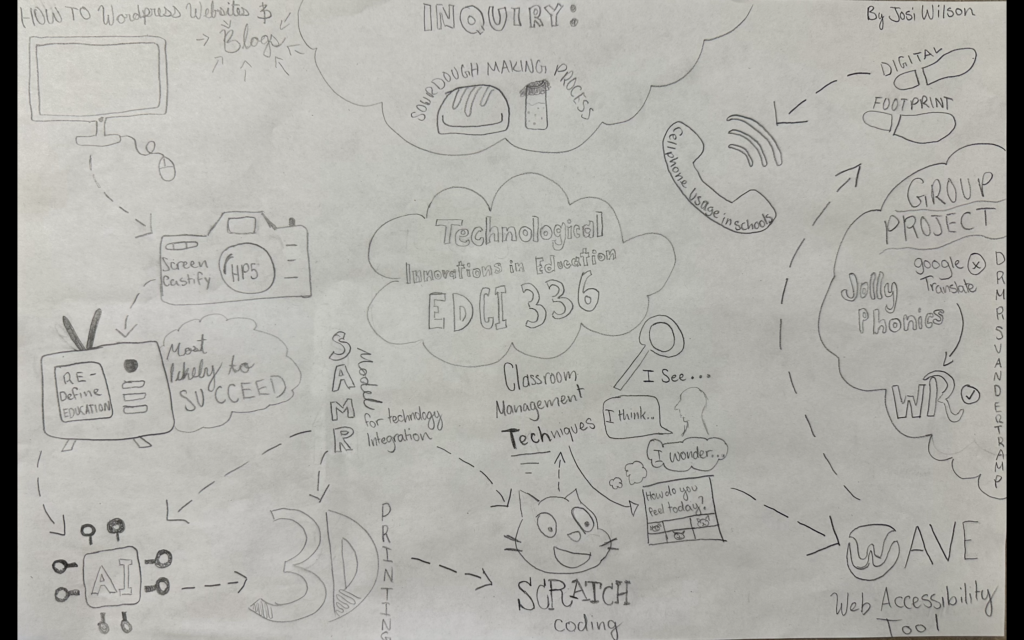 HOW TO Wordpress Websites &
Blogs
INQUIRY:
SOURDOUGH MAKING PROCESS
By Josi Wilson
DIGITAL
FOOTPRINT
Cell phone usage in schools
Screen
Castify
HP5
Technological
Innovations in Education
EDCI 336
GROUP
PROJECT
google
Translate
Jolly
Phonics
WR
DRMRSVANDERTRAMP
RE-
Define
EDUCATION
Most
likely to
SUCCEED
SAMR
Model
for technology
Integration
Classroom
Management
Techniques
I See...
I think..
I wonder...
How do you
feel today?
AI
3D
PRINTING
SCRATCH
coding
WAVE
Web Accessibility
Tool